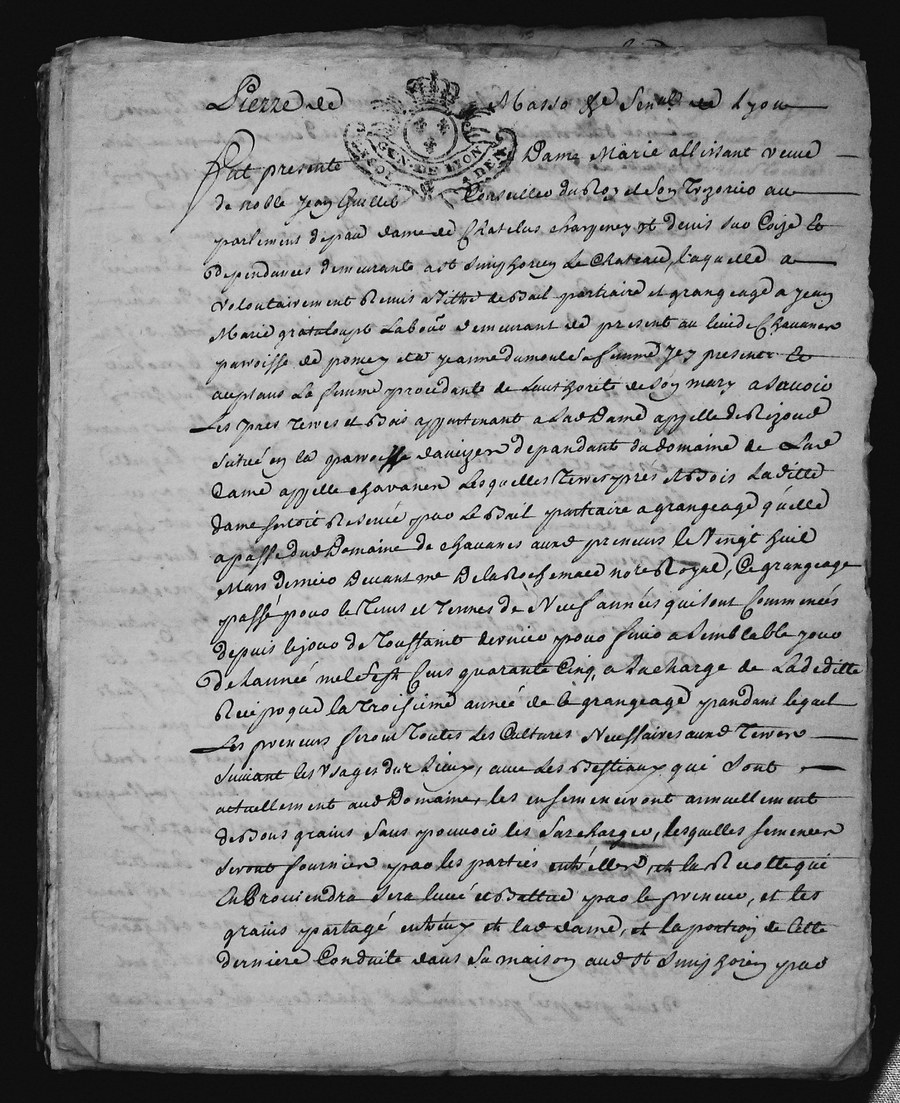 Pierre de Masso &e Senal de Lyon
GEN. DE LYON
DEN
Fut presente Dame Marie allissant veuve
de noble Jean Guillet Conseiller du Roy et son Trezorier au
parlement de dame de Chatelus Chargeney st denis sur Coize et
dependances demeurante a st Simphorien Le Chateau, Laquelle a
volontairement Remis a tittre de Bail partiaire et grangeage a Jean
Marie grataloup Labour demeurant de present au lieu de Chavanes
paroisse de pomey et a jeanne dumoul sa femme Icy present et
aceptans La femme procedante de Lauthorité de son mary a sauoir
Les prés Terres et Bois appartenant a Lad Dame appellé de Rizoud
Situé en la paroisse daveizes dependant du domaine de Lad
Dame appellé chavanes Lesquelles Terres prés et Bois Laditte
dame sertoit Reservée par Le Bail partiaire a grangeage quelle
a passé dud Domaine de chavanes aux preneurs le Vingt huit
Mars dernier devant me De la Rochemard notre Royal, Ce grangeage
passé pour le Tems et Termes de Neuf années qui sont Commencés
depuis le jour de Toussaint dernier pour finir a semblable jour
de Lannée mil sept Cens quarante Cinq, a la charge de La deditte
Reciproque la Troisieme année de le grangeage pandant lequel
Les preneurs feront Toutes Les Cultures Necessaires aux Terres
suivant les Usages dud Lieux, avec Les Bestiaux qui sont
actuellement aud Domaine, les ensemenceront annuellement
de Bons grains sans pouvoir les surcharger, lesquelles semences
seront fournies par les parties entr'elles, et la Recolte qui
En Proviendra sera levée et Battue par le preneur, et les
grains partagé entreux et lad dame, et la portion de Cette
derniere Conduite dans sa maison aud st Simphorien par